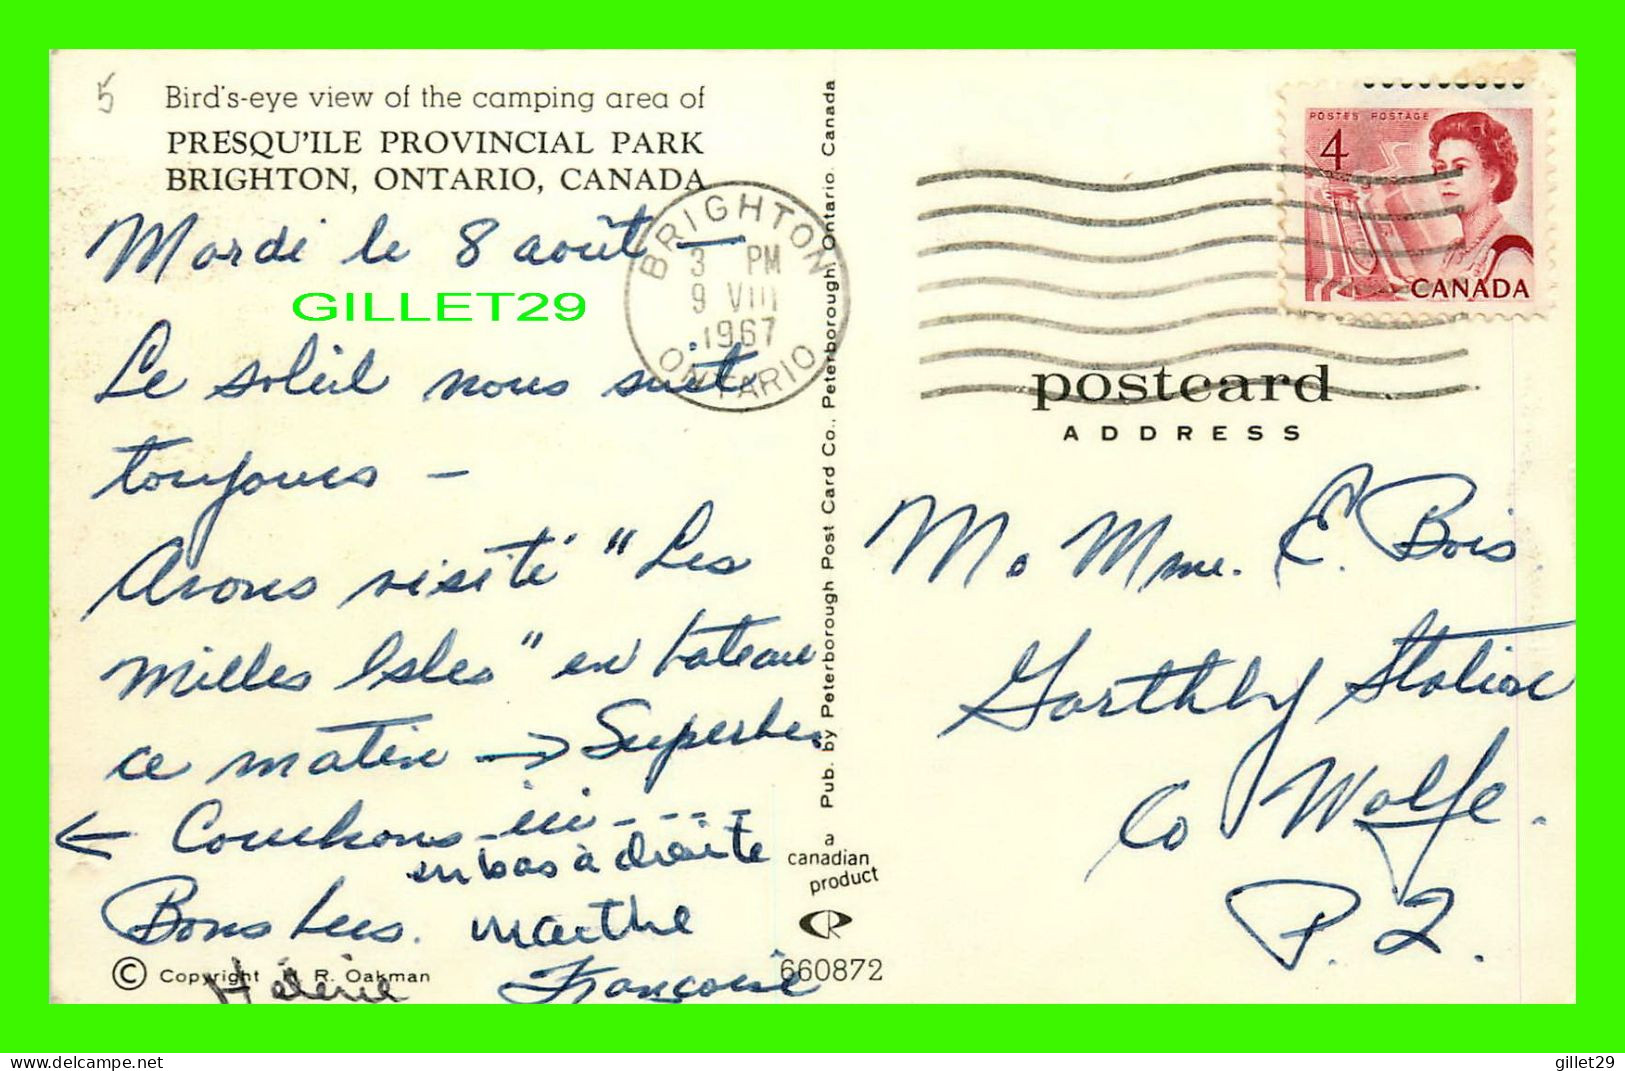 5
Bird's-eye view of the camping area of
PRESQU'ILE PROVINCIAL PARK
BRIGHTON, ONTARIO, CANADA
Mardi le 8 août —
GILLET29
Le soleil nous suit
toujours —
Avons visité "Les
Milles Isles" en bateau
ce matin → Superbe.
← Couchons ici - - - -
en bas à droite
Bons becs. Marthe
Hélène Françoise
© Copyright H. R. Oakman
BRIGHTON
3 PM
9 VIII
1967
ONTARIO
Pub. by Peterborough Post Card Co., Peterborough, Ontario. Canada
a
canadian
product
660872
POSTES POSTAGE
4
CANADA
postcard
ADDRESS
M. Mme. E. Bois
Garthby Station
Co Wolfe.
P. Q.
gillet29